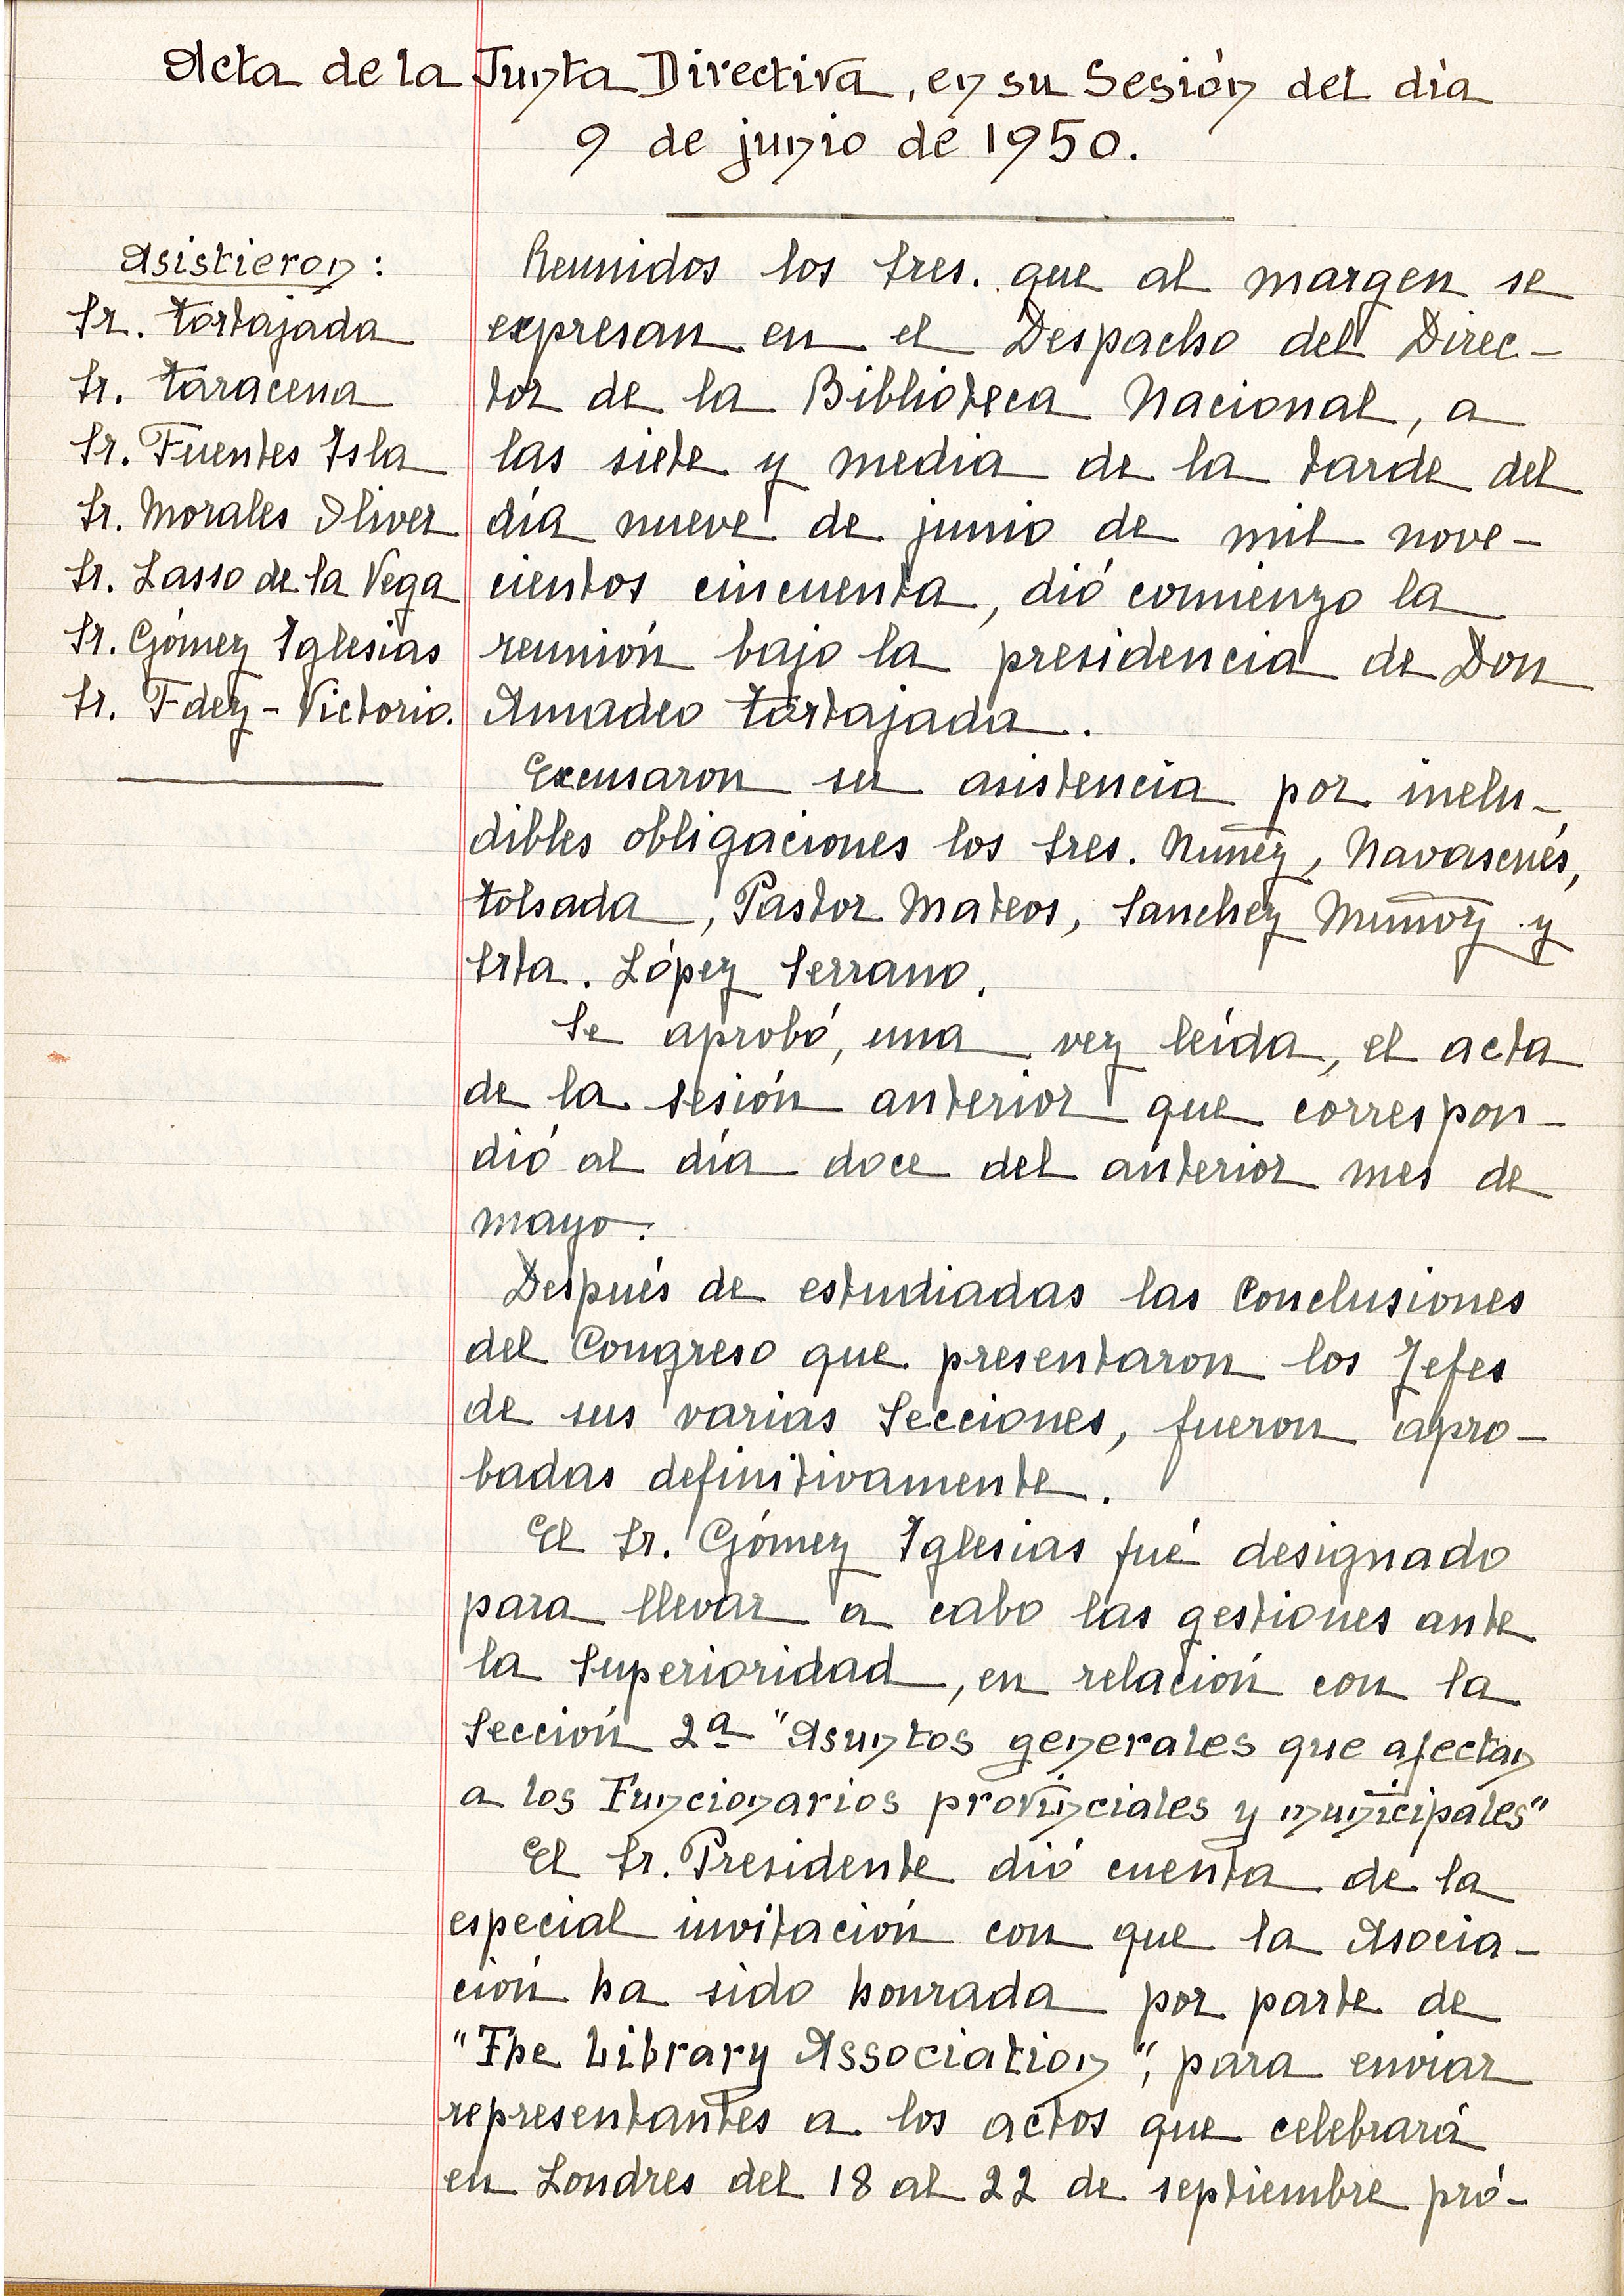 Acta de la Junta Directiva, en su Sesión del día
9 de junio de 1950.
Asistieron:
Sr. Tortajada
Sr. Taracena
Sr. Fuentes Isla
Sr. Morales Oliver
Sr. Lasso de la Vega
Sr. Gómez Iglesias
Sr. Fdez-Victorio.
Reunidos los Sres. que al margen se
expresan en el Despacho del Direc-
tor de la Biblioteca Nacional, a
las siete y media de la tarde del
día nueve de junio de mil nove-
cientos cincuenta, dió comienzo la
reunión bajo la presidencia de Don
Amadeo Tortajada.
Excusaron su asistencia por inelu-
dibles obligaciones los Sres. Nuñez, Navascués,
Tolsada, Pastor Mateos, Sanchez Muñoz y
Srta. López Serrano.
Se aprobó, una vez leída, el acta
de la sesión anterior que correspon-
dió al día doce del anterior mes de
mayo.
Después de estudiadas las Conclusiones
del Congreso que presentaron los Jefes
de sus varias Secciones, fueron apro-
badas definitivamente.
El Sr. Gómez Iglesias fué designado
para llevar a cabo las gestiones ante
la Superioridad, en relación con la
Sección 2ª "Asuntos generales que afectan
a los Funcionarios provinciales y municipales"
El Sr. Presidente dió cuenta de la
especial invitación con que la Asocia-
ción ha sido honrada por parte de
"The Library Association", para enviar
representantes a los actos que celebrará
en Londres del 18 al 22 de septiembre pró-